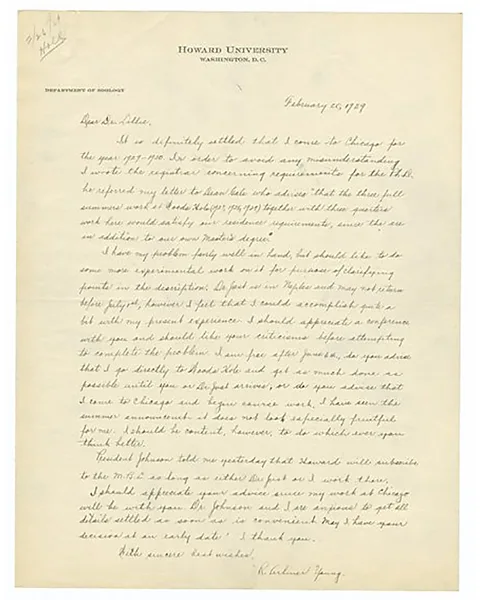 2/26/29
Hold
HOWARD UNIVERSITY
WASHINGTON, D. C.
DEPARTMENT OF ZOOLOGY
February 20, 1929
Dear Dr. Lillie,
It is definitely settled that I come to Chicago for
the year 1929-1930. In order to avoid any misunderstanding
I wrote the registrar concerning requirements for the Ph.D.
he referred my letter to Dean Gale who advises "that the three full
summers work at Woods Hole together with three quarters
work here would satisfy our residence requirements, since these are
in addition to our own Master's degree."
I have my problem fairly well in hand, but should like to do
some more experimental work on it for purpose of clarifying
points in the description. Dr. Just is in Naples and may not return
before July 1st, however I feel that I could accomplish quite a
bit with my present experience. I should appreciate a conference
with you and should like your criticisms before attempting
to complete the problem. I am free after June, do you advise
that I go directly to Woods Hole and get as much done as
possible until you or Dr. Just arrives, or do you advise that
I come to Chicago and begin course work. I have seen the
summer announcement it does not look especially fruitful
for me. I should be content, however, to do which ever you
think better.
President Johnson told me yesterday that Howard will subscribe
to the M.B.L. so long as either Dr. Just or I work there.
I should appreciate your advice since my work at Chicago
will be with you. Dr. Johnson and I are anxious to get all
details settled as soon as is convenient. May I have your
decision at an early date? I thank you.
With sincere best wishes,
R. Arliner Young.